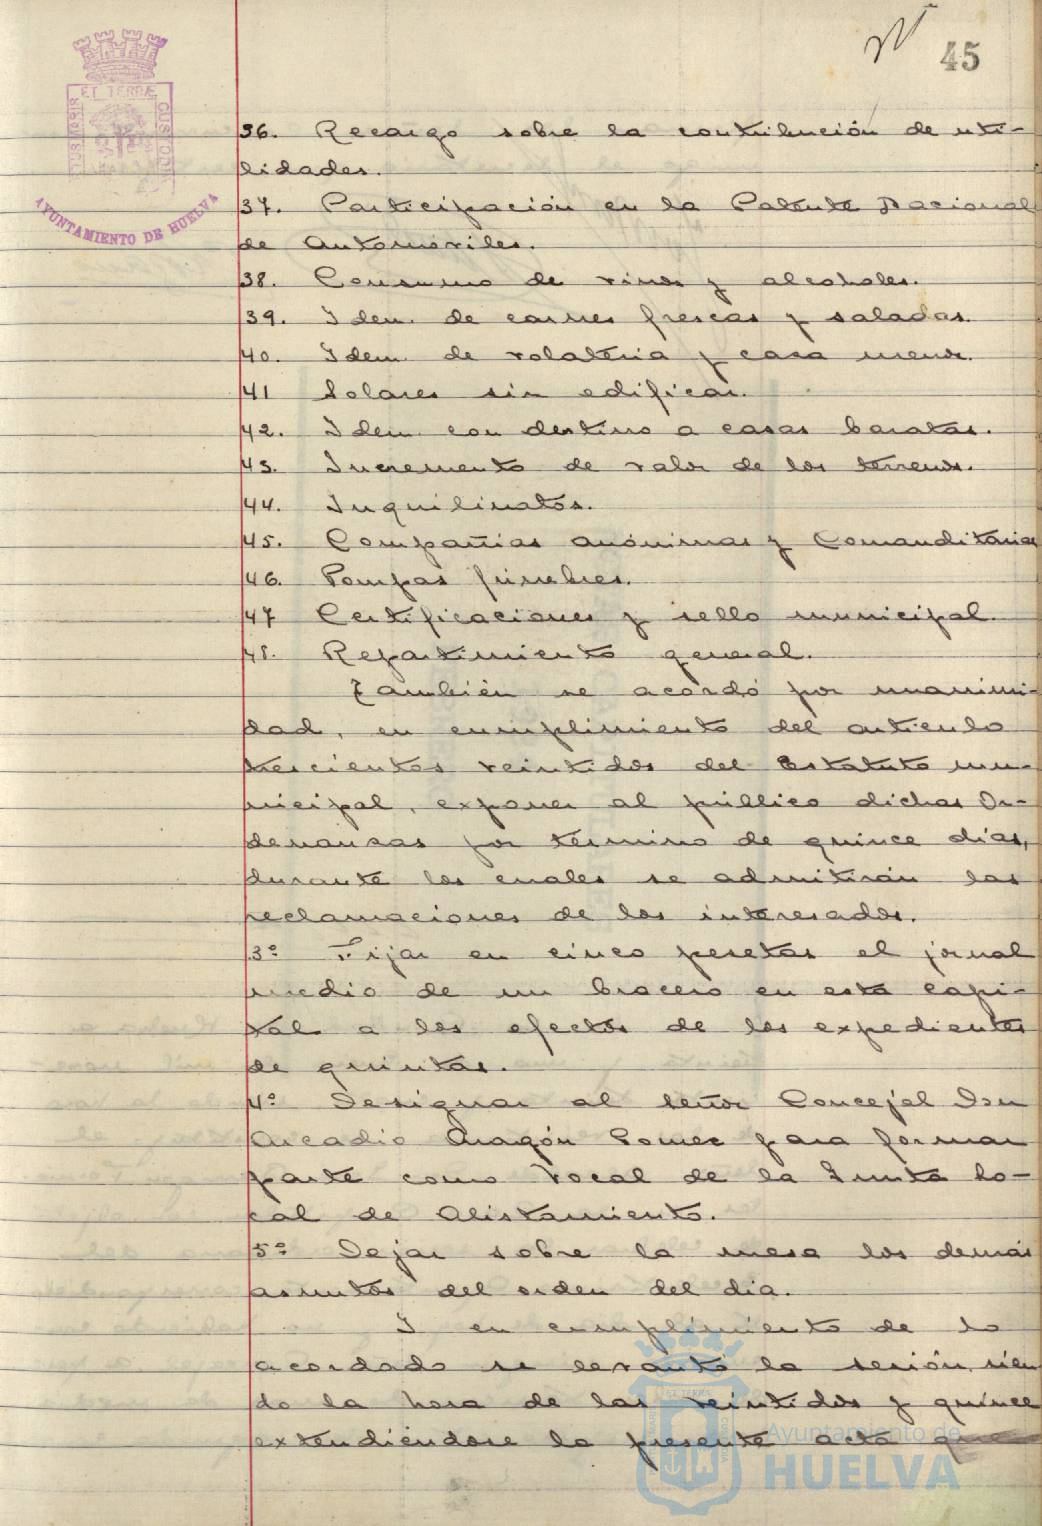 45
ET TERRÆ
CUSTODIA
AYUNTAMIENTO DE HUELVA
36. Recargo sobre la contribución de uti-
lidades.
37. Participación en la Patente Nacional
de Automóviles.
38. Consumo de vinos y alcoholes.
39. Idem. de carnes frescas y saladas.
40. Idem. de volatería y caza menor.
41 Solares sin edificar.
42. Idem. con destino a casas baratas.
43. Incremento de valor de los terrenos.
44. Inquilinatos.
45. Compañías anónimas y Comanditarias
46. Pompas fúnebres.
47 Certificaciones y sello municipal.
48. Repartimiento general.
También se acordó por unanimi-
dad, en cumplimiento del artículo
trescientos veintidos del Estatuto mu-
nicipal, exponer al público dichas Or-
denanzas por término de quince días,
durante los cuales se admitirán las
reclamaciones de los interesados.
3º Fijar en cinco pesetas el jornal
medio de un bracero en esta capi-
tal a los efectos de los expedientes
de quintas.
4º Designar al señor Concejal Don
Arcadio Aragón Gomez para formar
parte como Vocal de la Junta lo-
cal de Alistamiento.
5º Dejar sobre la mesa los demás
asuntos del orden del día.
Y en cumplimiento de lo
acordado se levantó la sesión, sien
do la hora de las veintidos y quince
extendiéndose la presente acta que
Ayuntamiento de
HUELVA